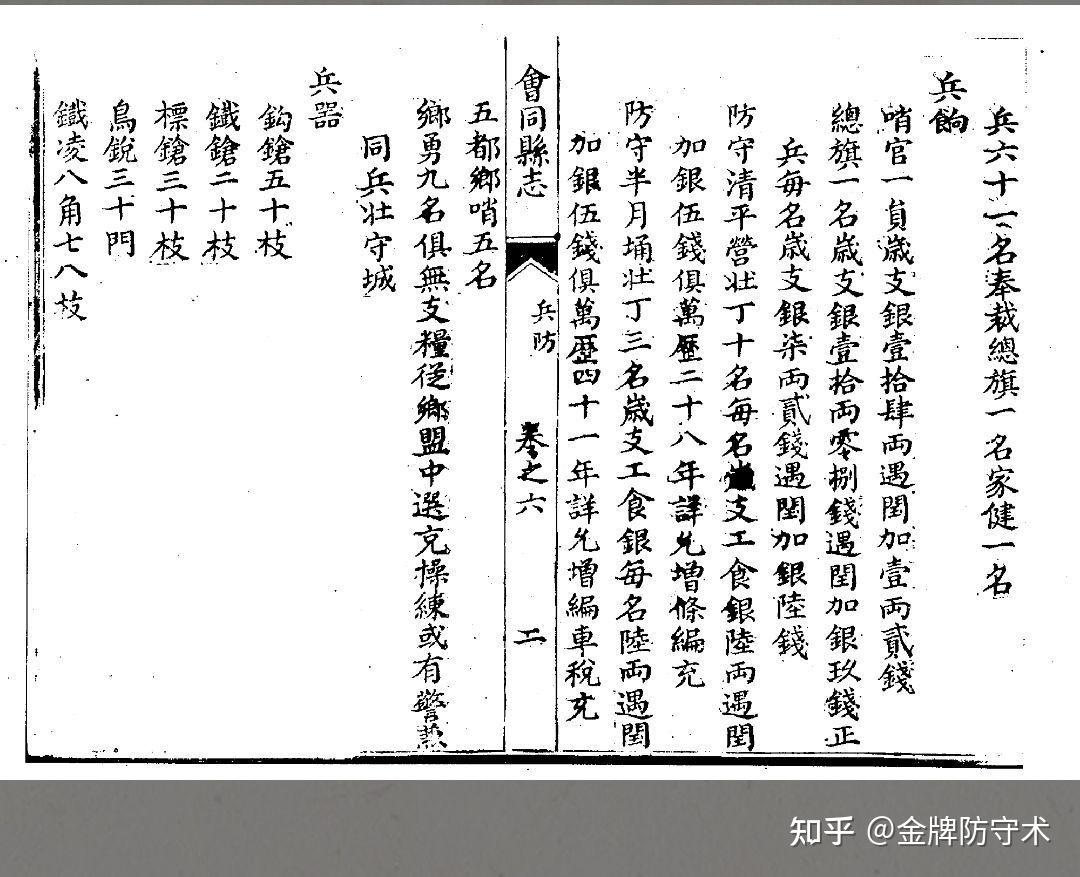 兵六十一名奉裁總旗一名家健一名
兵餉
哨官一員歲支銀壹拾肆両遇閏加壹両貳錢
總旗一名歲支銀壹拾両零捌錢遇閏加銀玖錢正
兵每名歲支銀柒両貳錢遇閏加銀陸錢
防守清平營壯丁十名每名歲支工食銀陸両遇閏
加銀伍錢俱萬歷二十八年詳允增條編充
防守半月埇壯丁三名歲支工食銀每名陸両遇閏
加銀伍錢俱萬歷四十一年詳允增編車稅充
會同縣志
兵防
卷之六
二
五都鄉哨五名
鄉勇九名俱無支糧從鄉盟中選充操練或有警急
同兵壯守城
兵器
鈎鎗五十枝
鐵鎗二十枝
標鎗三十枝
鳥銃三十門
鐵凌八角七八枝
知乎 @金牌防守术